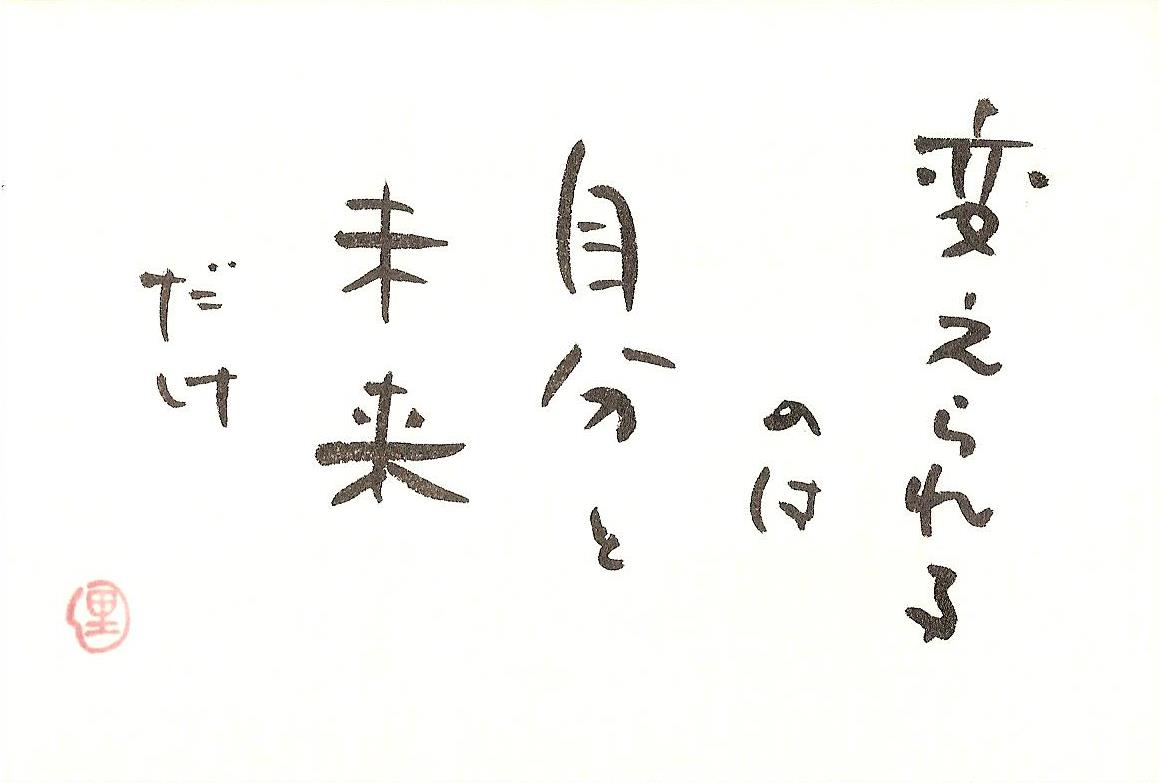 変えられる
のは
自分と
未来
だけ